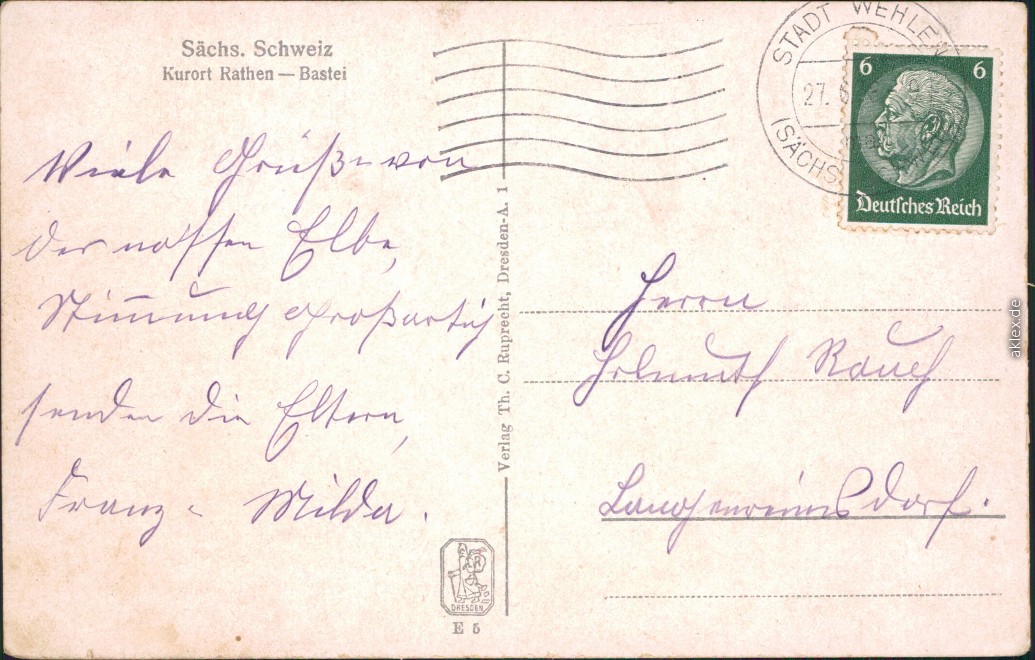 Sächs. Schweiz
Kurort Rathen — Bastei
Viele Grüße von
der nassen Elbe,
Stimmung großartig
senden die Eltern,
Franz - Milda.
Verlag Th. C. Ruprecht, Dresden-A. 1
DRESDEN
E 5
STADT WEHLEN
27.
(SÄCHS
6 6
Deutsches Reich
Herrn
Helmuth Rauch
Langenreinsdorf.
aklex.de